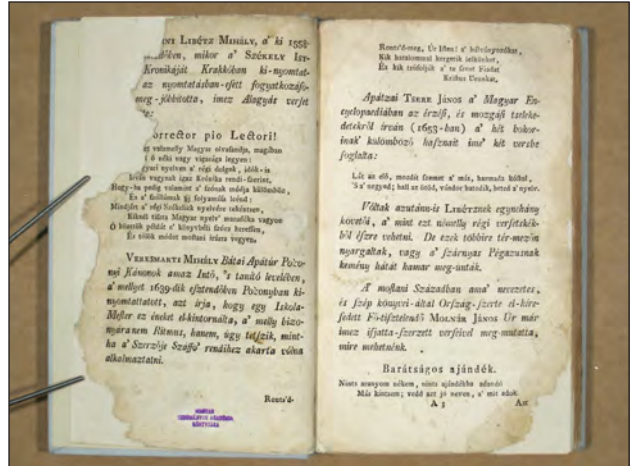 LIBÉTZ MIHÁLY, a' ki 1558-
ben, mikor a' SZÉKELY IST-
Kronikáját Krakkóban ki-nyomtat-
az nyomtatásban-esett fogyatkozáso-
meg-jobbította, imez Alagyás verset
orrector pio Lectori!
valamelly Magyar olvasandja, magában
ő néki vagy vigasága legyen:
nyelven a' régi dolgok, idők-is
vagynak igaz Krónika rendi-szerint,
Hogy-ha pedig valamit a' szónak módja különböz,
És a' szóllásnak új folyamása
VEREMÁNTI MIHÁLY Bátai Apátúr Po'so-
nyi Kánonok amaz Intő, 's tanító levelében,
a' mellyet 1639-dik esztendőben Po'sonyban ki-
nyomtattatott, azt írja, hogy egy Iskola-
Mester ez éneket el-kintornálta, a' melly bizo-
nyára nem Ritmus, hanem, úgy tetszik, mint-
ha a' Szerzője Szaffo' rendihez akarta vólna
alkalmaztatni.
Ronts'd-
MAGYAR
TUDOMÁNYOS AKADÉMIA
KÖNYVTÁRA
Ronts'd-meg, Úr Isten! a' bálványozókat,
Kik haragossan kergetik lelkünket,
És kik trúfolják a' te szent Fiadat
Kristus Urunkat.
Apátzai TSERE JÁNOS a' Magyar En-
cyclopaediában az érző, és mozgó tseleke-
detekről írván (1653-ban) a' hét bokor-
inak' külömböző hasznait ime' két versbe
foglalta:
Lát az elő, mozdít szemet a' más, harmada kóstol,
'S a' negyed; hall az ötöd, vándor hatodik, heted a' nyelv.
Vóltak azutánn-is LIBÉTZnek egynehány
követői, a' mint ezt némelly régi versetskék-
ből észre vehetni. De ezek többire tér-mezőn
nyargaltak, vagy a' szárnyas Pégazusnak
kemény hátát hamar meg-unták.
A' mostani Században ama' nevezetes,
és szép könyvei-által Ország-szerte el-híre-
sedett Fő-tisztelendő MOLNÁR JÁNOS Úr már
imez ifjatta-szerzett versével meg-mutatta,
mire mehetnénk.
Barátságos ajándék.
Nints aranyom nékem, nints ajándékba adandó
Más kintsem; vedd azt jó neven, a' mit adok.
A 3
Az